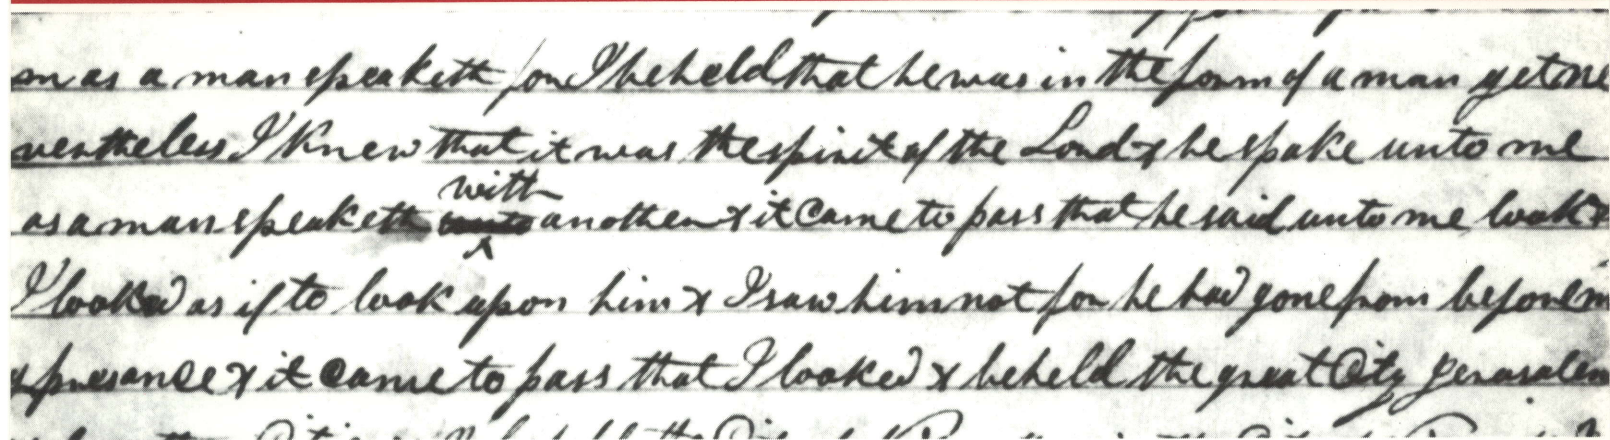 m as a man speaketh for I beheld that he was in the form of a man yet ne
vertheless I knew that it was the spirit of the Lord & he spake unto me
with
as a man speaketh unto another & it came to pass that he said unto me look &
I looked as if to look upon him & I saw him not for he had gone from before m
y presance & it came to pass that I looked & beheld the great City Jerusalem